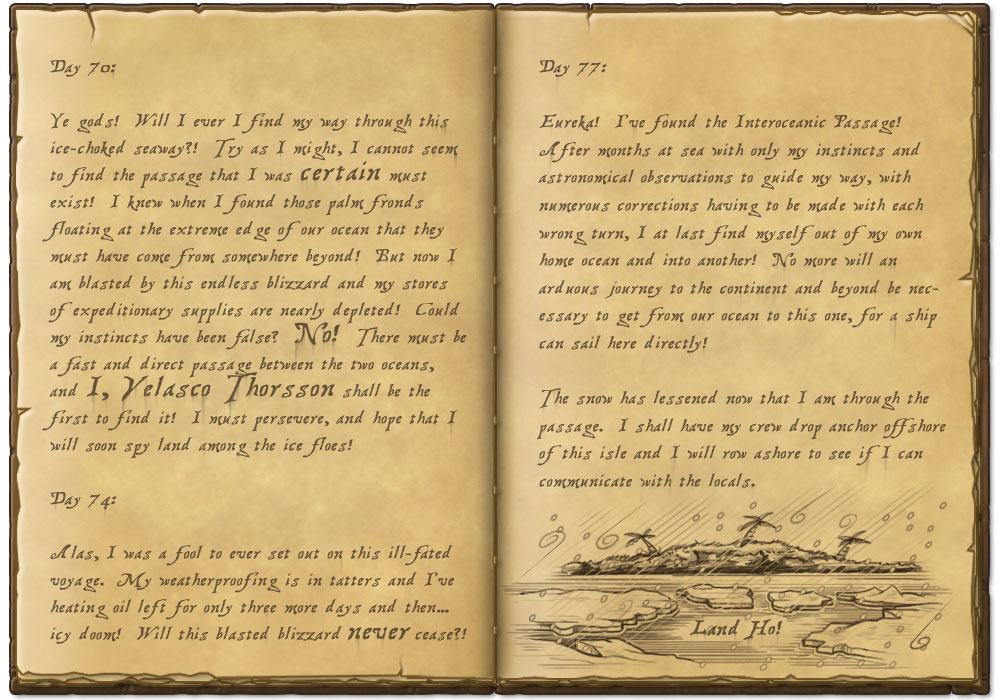 Day 70:
Ye gods! Will I ever I find my way through this
ice-choked seaway?! Try as I might, I cannot seem
to find the passage that I was certain must
exist! I knew when I found those palm fronds
floating at the extreme edge of our ocean that they
must have come from somewhere beyond! But now I
am blasted by this endless blizzard and my stores
of expeditionary supplies are nearly depleted! Could
my instincts have been false? No! There must be
a fast and direct passage between the two oceans,
and I, Velasco Thorsson shall be the
first to find it! I must persevere, and hope that I
will soon spy land among the ice floes!
Day 74:
Alas, I was a fool to ever set out on this ill-fated
voyage. My weatherproofing is in tatters and I've
heating oil left for only three more days and then...
icy doom! Will this blasted blizzard never cease?!
Day 77:
Eureka! I've found the Interoceanic Passage!
After months at sea with only my instincts and
astronomical observations to guide my way, with
numerous corrections having to be made with each
wrong turn, I at last find myself out of my own
home ocean and into another! No more will an
arduous journey to the continent and beyond be nec-
essary to get from our ocean to this one, for a ship
can sail here directly!
The snow has lessened now that I am through the
passage. I shall have my crew drop anchor offshore
of this isle and I will row ashore to see if I can
communicate with the locals.
Land Ho!